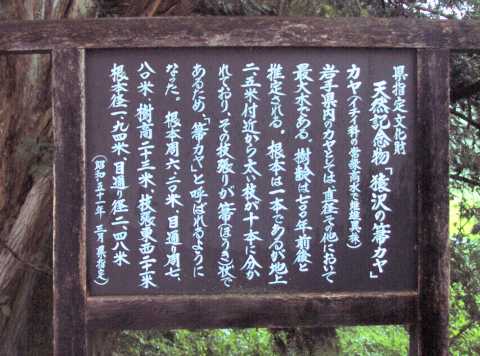 県指定文化財
天然記念物「猿沢の箒カヤ」
カヤ(イチイ科の常緑高木で雌雄異株)
岩手県内のカヤとしては、直径その他において
最大木である。樹齢は七〇〇年前後と
推定される。根本は一本であるが地上
二・五米付近から太い枝が十本に分か
れており、その枝張りが箒(ほうき)状で
あるため、「箒カヤ」と呼ばれるように
なった。根本周六、二〇米、目通り周七、
八〇米、樹高二十三米、枝張東西二十米
根本径一、九四米、目通り径二、四八米
(昭和五十一年 三月 県指定)